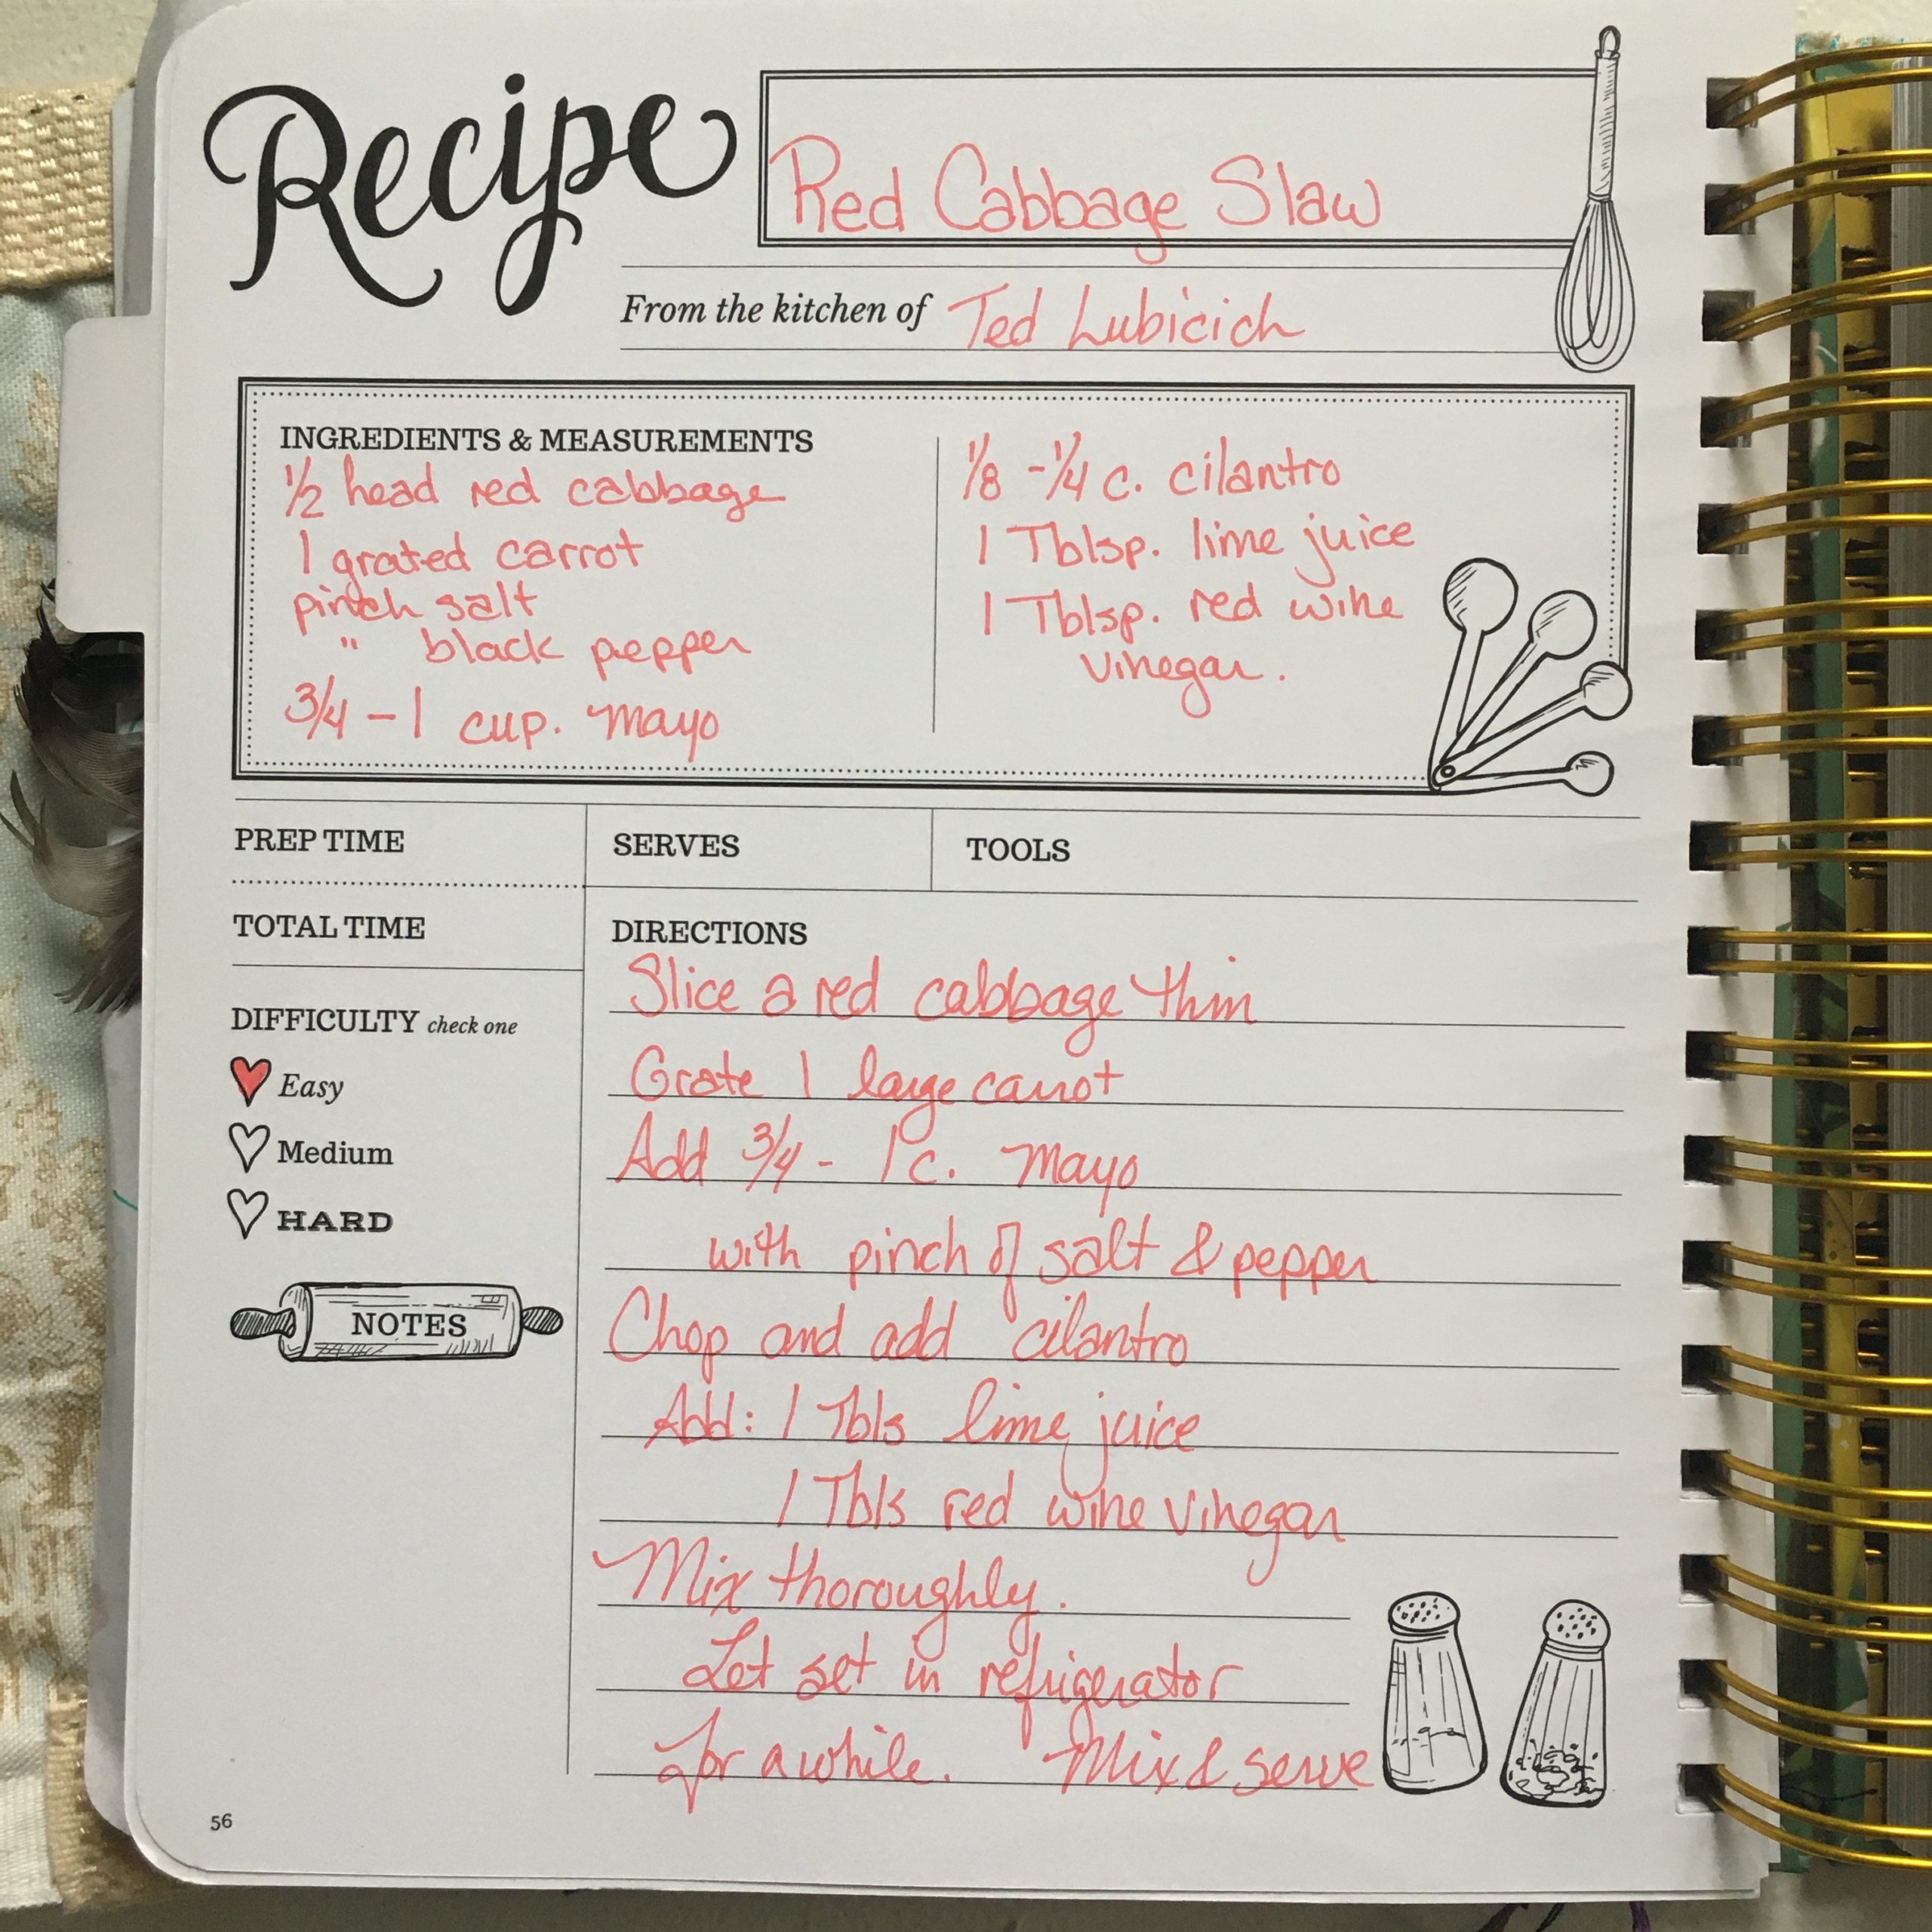 Recipe
Red Cabbage Slaw
From the kitchen of Ted Lubicich
INGREDIENTS & MEASUREMENTS
1/2 head red cabbage
1 grated carrot
pinch salt
" black pepper
3/4 - 1 cup. mayo
1/8 - 1/4 c. cilantro
1 Tblsp. lime juice
1 Tblsp. red wine
vinegar.
PREP TIME
SERVES
TOOLS
TOTAL TIME
DIFFICULTY check one
Easy
Medium
HARD
NOTES
DIRECTIONS
Slice a red cabbage thin
Grate 1 large carrot
Add 3/4 - 1 c. mayo
with pinch of salt & pepper
Chop and add cilantro
Add: 1 Tbls lime juice
1 Tbls red wine vinegar
Mix thoroughly.
Let set in refrigerator
for awhile. Mix & serve
56